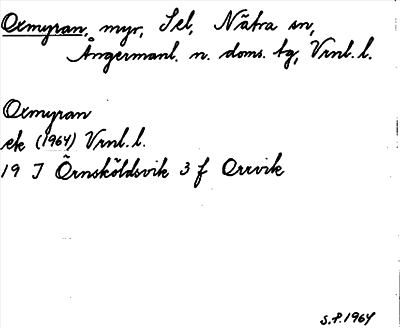 Oxmyran, myr, Sel, Nätra sn,
Ångermanl. n. doms. tg, Vrnl. l.
Oxmyran
ek (1964) Vrnl. l.
19 J Örnsköldsvik 3 f Orrvik
S.P. 1964